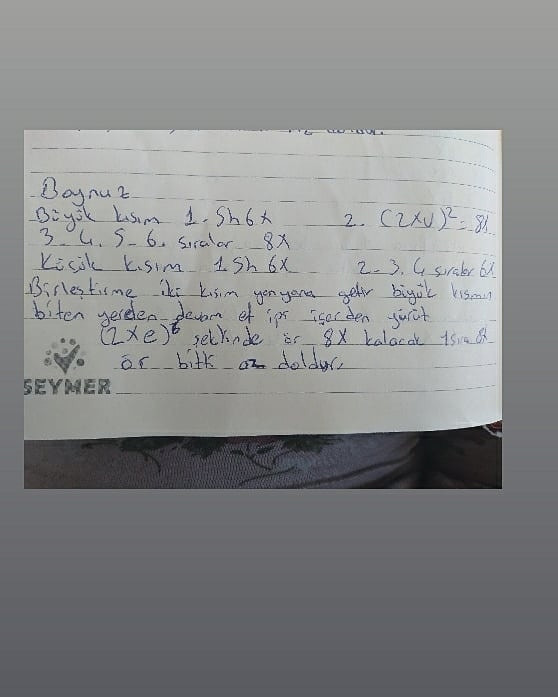 Boynuz
Büyük kısım 1. Sh 6x 2. (2xv)² = 8x
3. 4. 5. 6. sıralar 8x
Küçük kısım 1 Sh 6x 2. 3. 4 sıralar 6x
Birleştirme iki kısım yan yana getir büyük kısmın
biten yerden devam et ipi içerden yürüt
(2xe)⁶ şeklinde ör 8x kalacak 1 sıra 8x
ör bitir az doldur.
SEYMER